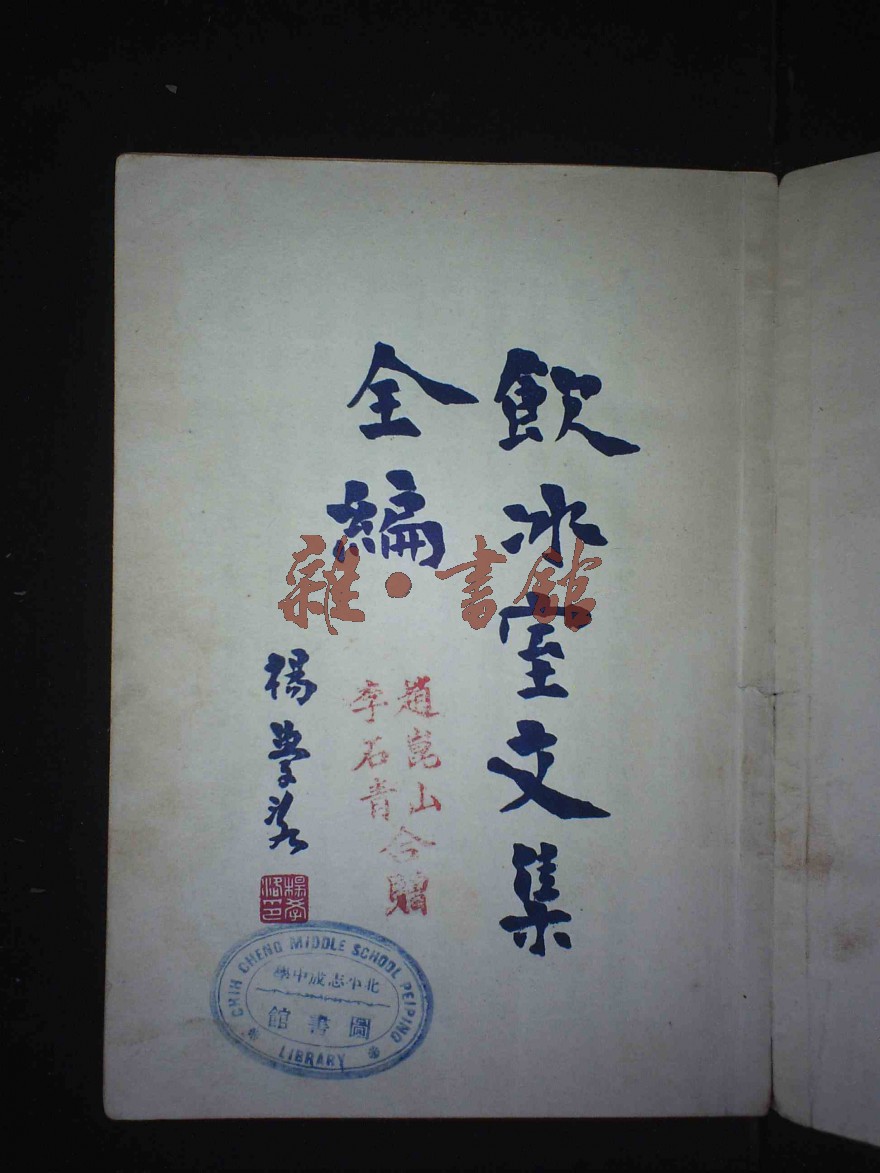 飲冰室文集
全編
趙嵩山
李石青
合贈
楊學洛
楊學洛印
雜·書館
CHIH CHENG MIDDLE SCHOOL PEIPING
北平志成中學
圖書館
LIBRARY